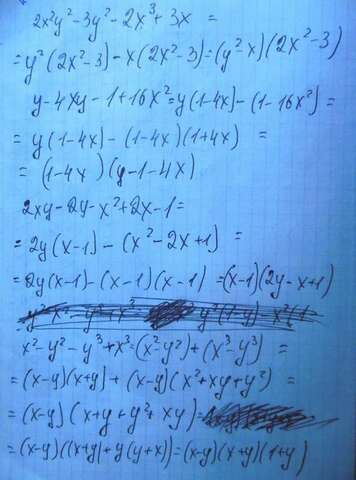 2x²y² - 3y² - 2x³ + 3x =
= y²(2x² - 3) - x(2x² - 3) = (y² - x)(2x² - 3)
y - 4xy - 1 + 16x² = y(1 - 4x) - (1 - 16x²) =
= y(1 - 4x) - (1 - 4x)(1 + 4x) =
= (1 - 4x)(y - 1 - 4x)
2xy - 2y - x² + 2x - 1 =
= 2y(x - 1) - (x² - 2x + 1) =
= 2y(x - 1) - (x - 1)(x - 1) = (x - 1)(2y - x + 1)
x² - y² - y³ + x³ = (x² - y²) + (x³ - y³) =
= (x - y)(x + y) + (x - y)(x² + xy + y²) =
= (x - y)(x + y + y² + xy) =
= (x - y)((x + y) + y(y + x)) = (x - y)(x + y)(1 + y)